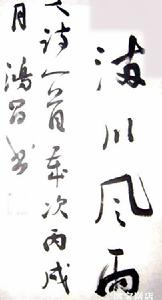 满川风雨
人诗一首岁次丙戌
月鸿昌书